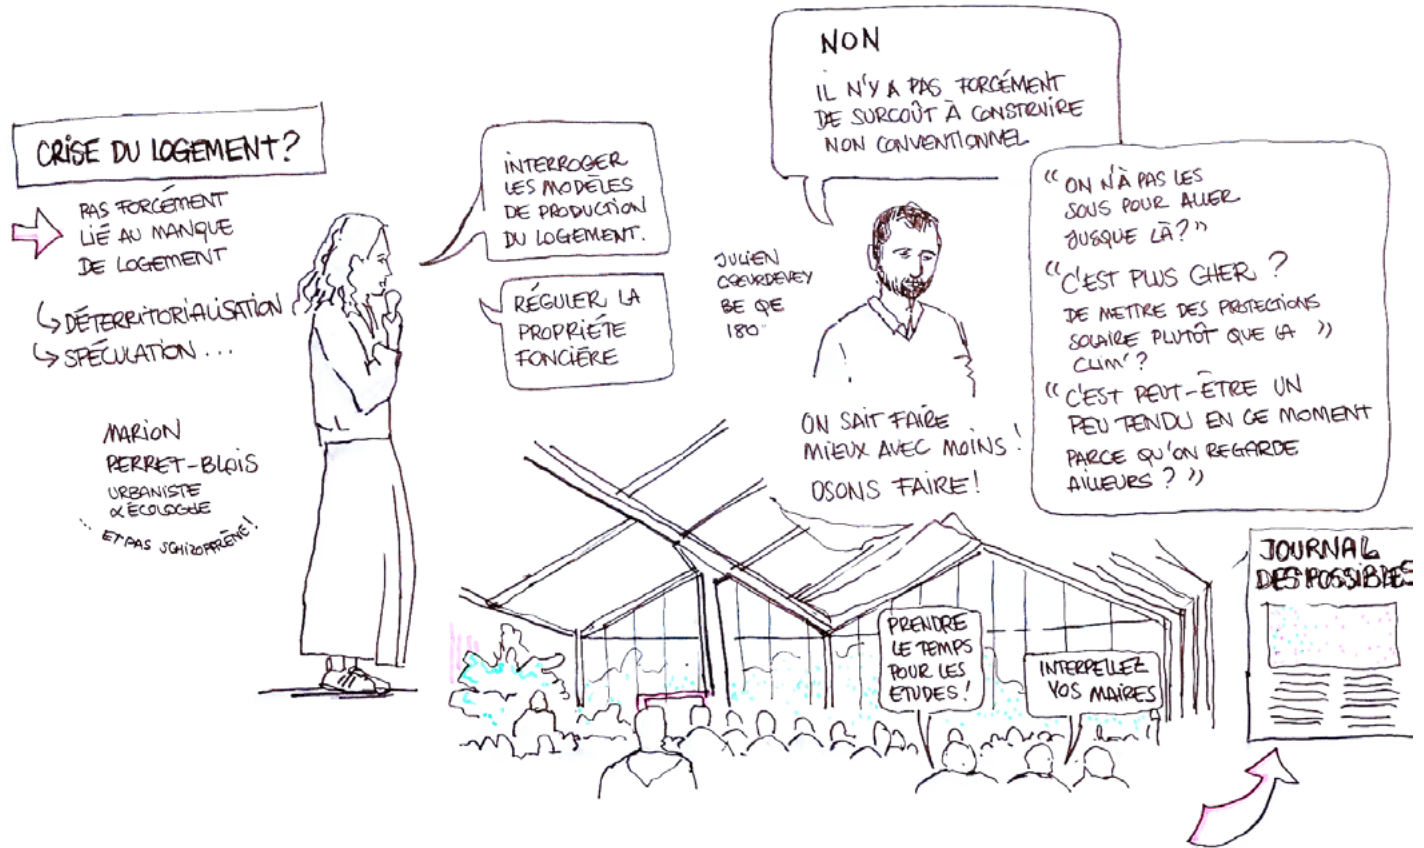 CRISE DU LOGEMENT?
PAS FORCÉMENT
LIÉ AU MANQUE
DE LOGEMENT
DÉTERRITORIALISATION
SPÉCULATION...
MARION
PERRET-BLOIS
URBANISTE
& ÉCOLOGUE
... ET PAS SCHIZOPHRÈNE!
INTERROGER
LES MODÈLES
DE PRODUCTION
DU LOGEMENT.
RÉGULER LA
PROPRIÉTÉ
FONCIÈRE
NON
IL N'Y A PAS FORCÉMENT
DE SURCOÛT À CONSTRUIRE
NON CONVENTIONNEL
JULIEN
COEURDEVEY
BE QE
180°
ON SAIT FAIRE
MIEUX AVEC MOINS!
OSONS FAIRE!
"ON N'À PAS LES
SOUS POUR ALLER
JUSQUE LÀ?"
"C'EST PLUS CHER?
DE METTRE DES PROTECTIONS
SOLAIRE PLUTÔT QUE LA "
CLIM'?
"C'EST PEUT-ÊTRE UN
PEU TENDU EN CE MOMENT
PARCE QU'ON REGARDE
AILLEURS?"
PRENDRE
LE TEMPS
POUR LES
ETUDES!
INTERPELLEZ
VOS MAIRES
JOURNAL
DES POSSIBLES